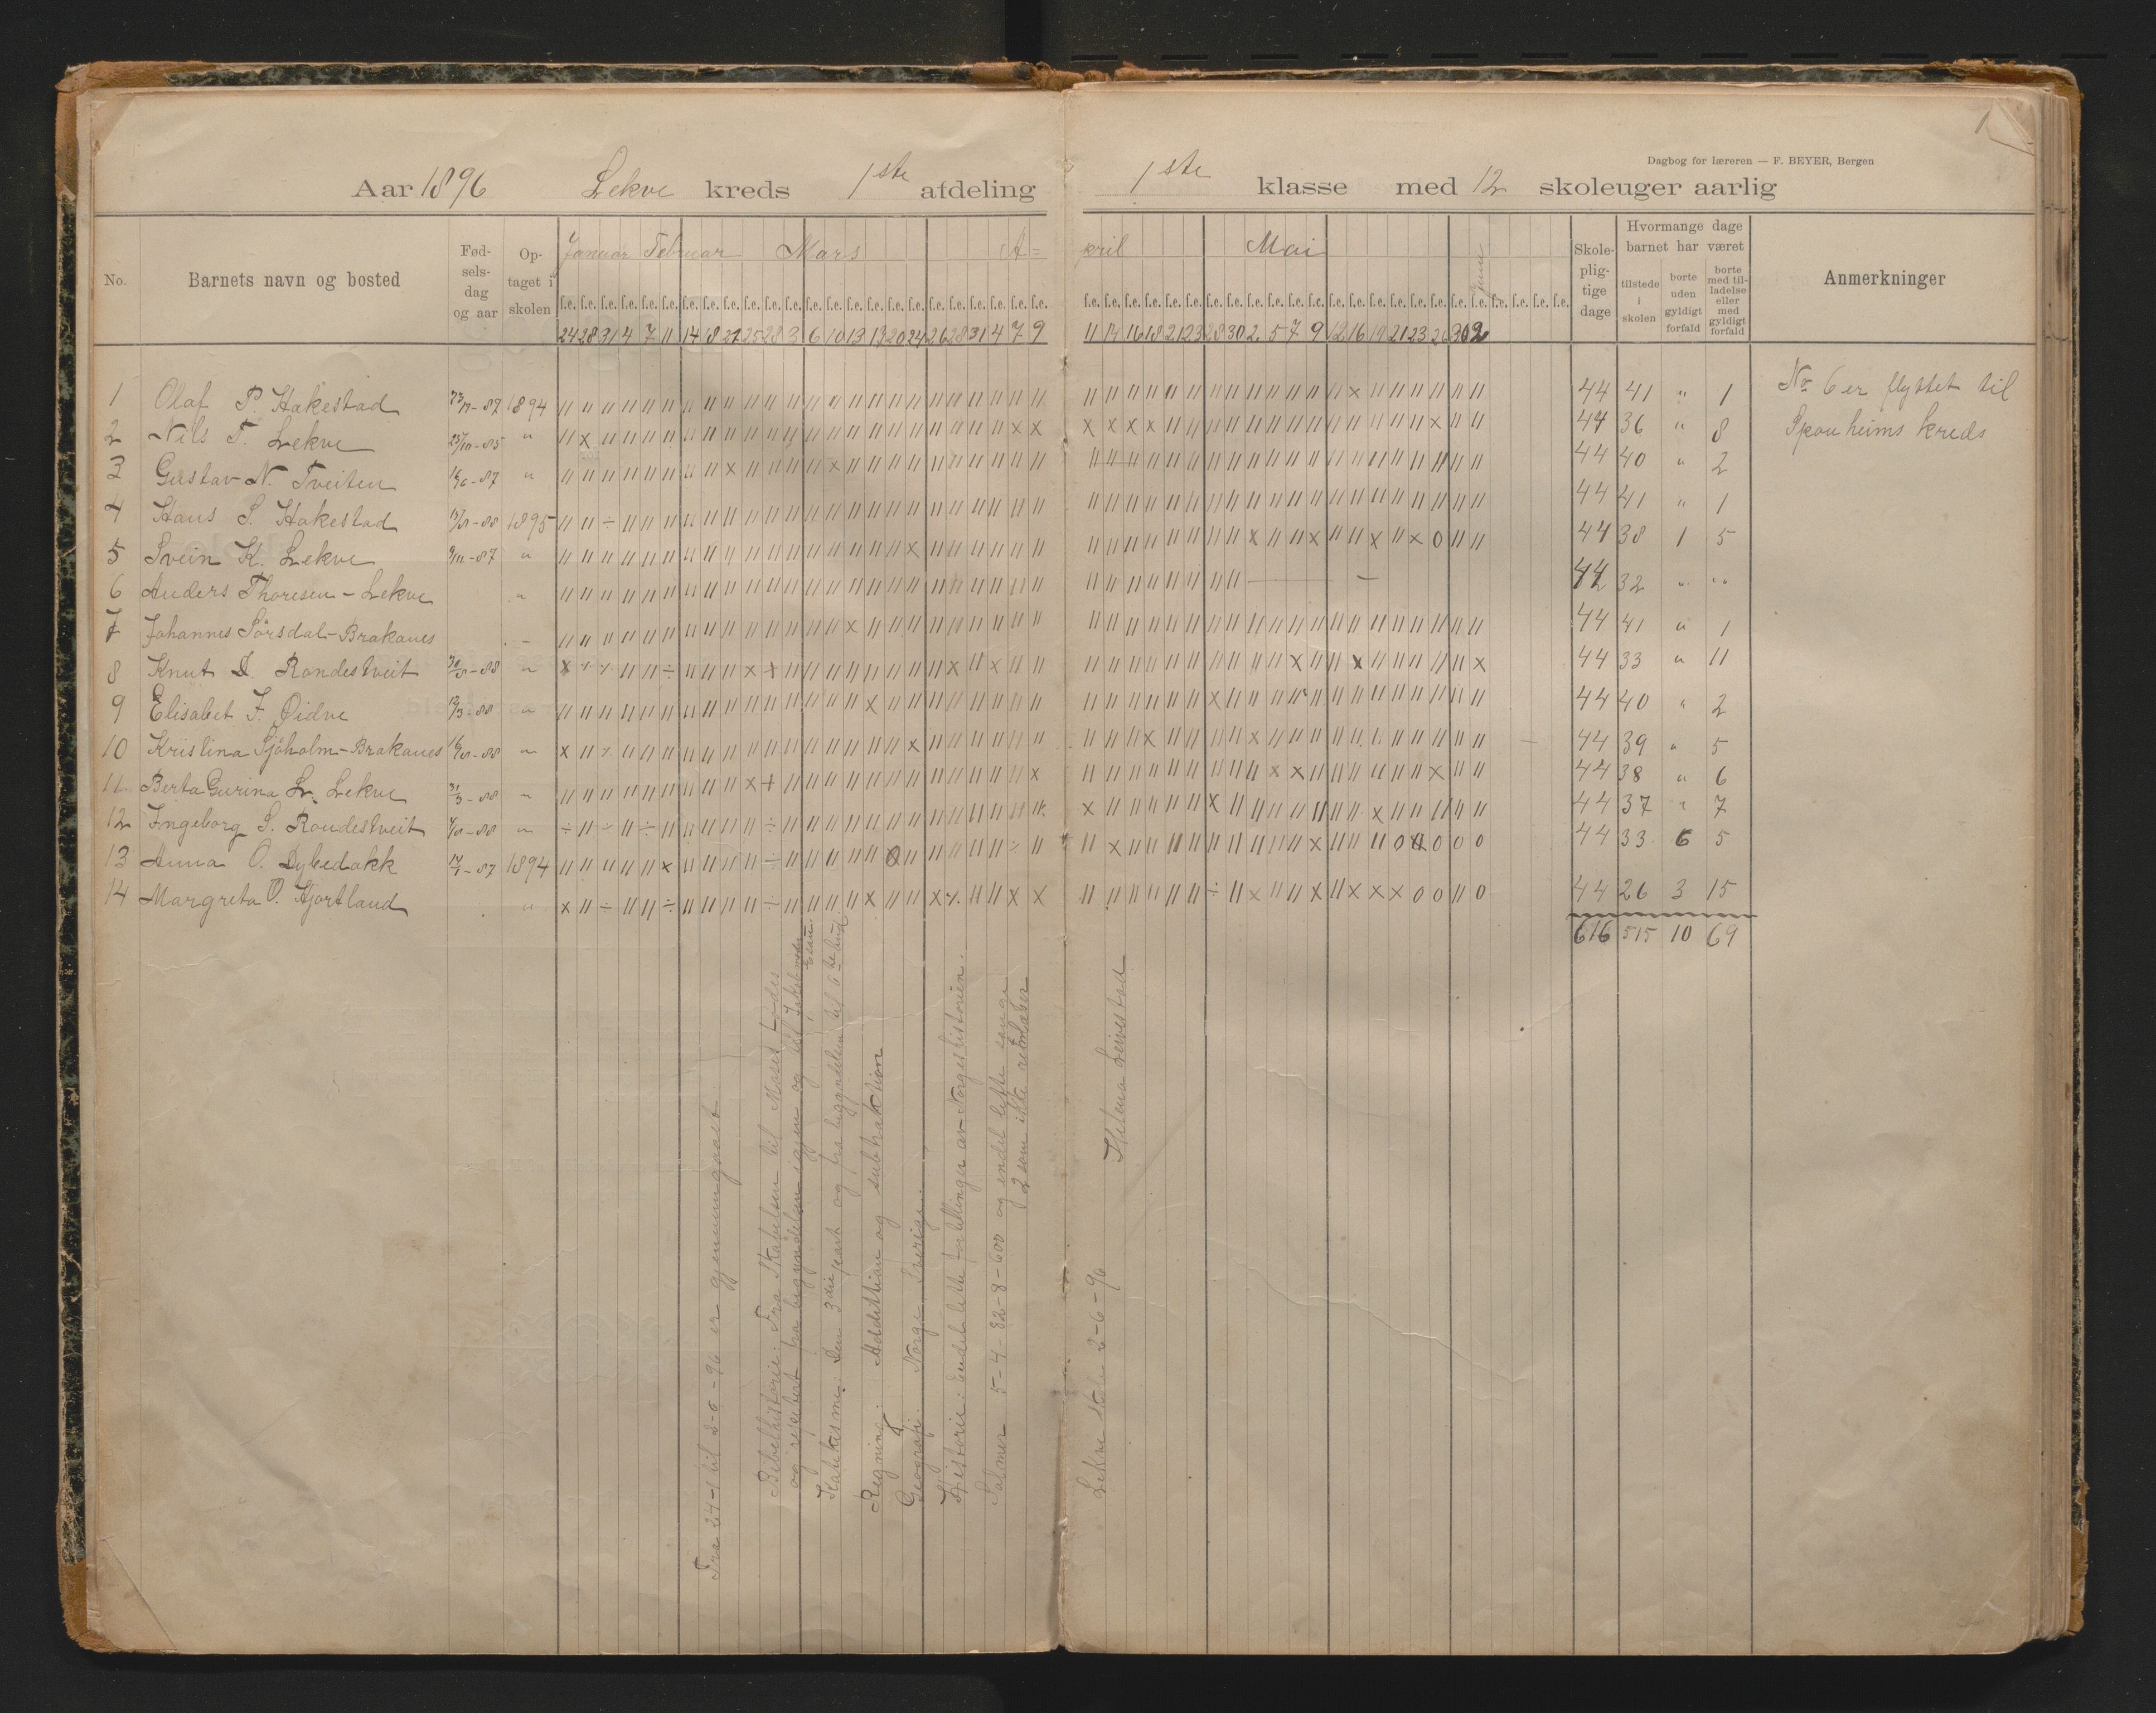 Dagbog for læreren — F. BEYER, Bergen
Aar 1896 Lekve kreds 1ste afdeling 1ste klasse med 12 skoleuger aarlig
No. Barnets navn og bosted Fødselsdag og aar Optaget i skolen Januar Februar Mars A= pril Mai Juni Skolepligtige dage Hvormange dage barnet har været tilstede i skolen borte uden gyldigt forfald borte med tilladelse eller med gyldigt forfald Anmerkninger
24 28 31 4 7 11 14 18 21 25 28 3 6 10 13 20 24 26 28 31 4 7 9 11 14 16 18 21 23 28 30 2 5 7 9 12 16 19 21 23 26 30 2
1 Olaf P. Hakestad 1894 44 41 " 1 No 6 er flyttet til
2 Nils T. Lekve 23/10-85 " 44 36 " 8 Sponheims kreds
3 Gustav N. Tveiten " 44 40 " 2
4 Hans S. Hakestad 1895 44 41 " 1
5 Svein K. Lekve " 44 38 1 5
6 Anders Thoresen - Lekve " 32 " "
7 Johannes Sørsdal - Brakanes 44 41 " 1
8 Knut D. Rondestveit " 44 33 " 11
9 Elisabet J. Øidve " 44 40 " 2
10 Kristina Sjøholm - Brakanes " 44 39 " 5
11 Berta Gurina L. Lekve 31/3-88 " 44 38 " 6
12 Ingeborg S. Rondestveit " 44 37 " 7
13 Anna O. Dybedokk 1894 44 33 6 5
14 Margreta O. Hjortland " 44 26 3 15
616 515 10 69
Fra 24-1 til 2-6-96 er gjennemgaaet:
Bibelhistorie: Fra Skabelsen til Moses fødes
og repetert fra begyndelsen igjen og til Jakob møder Esau.
Katekisme: Den 3die part og fra begyndelsen til 6te bud.
Regning: Addittion og subtraktion
Geografi: Norge, Sverige.
Historie: Endel lette fortellinger av Norgeshistorien.
Salmer 5-4-82-8-600 og endel lette sange
2 som ikke
Lekve skole 2-6-96